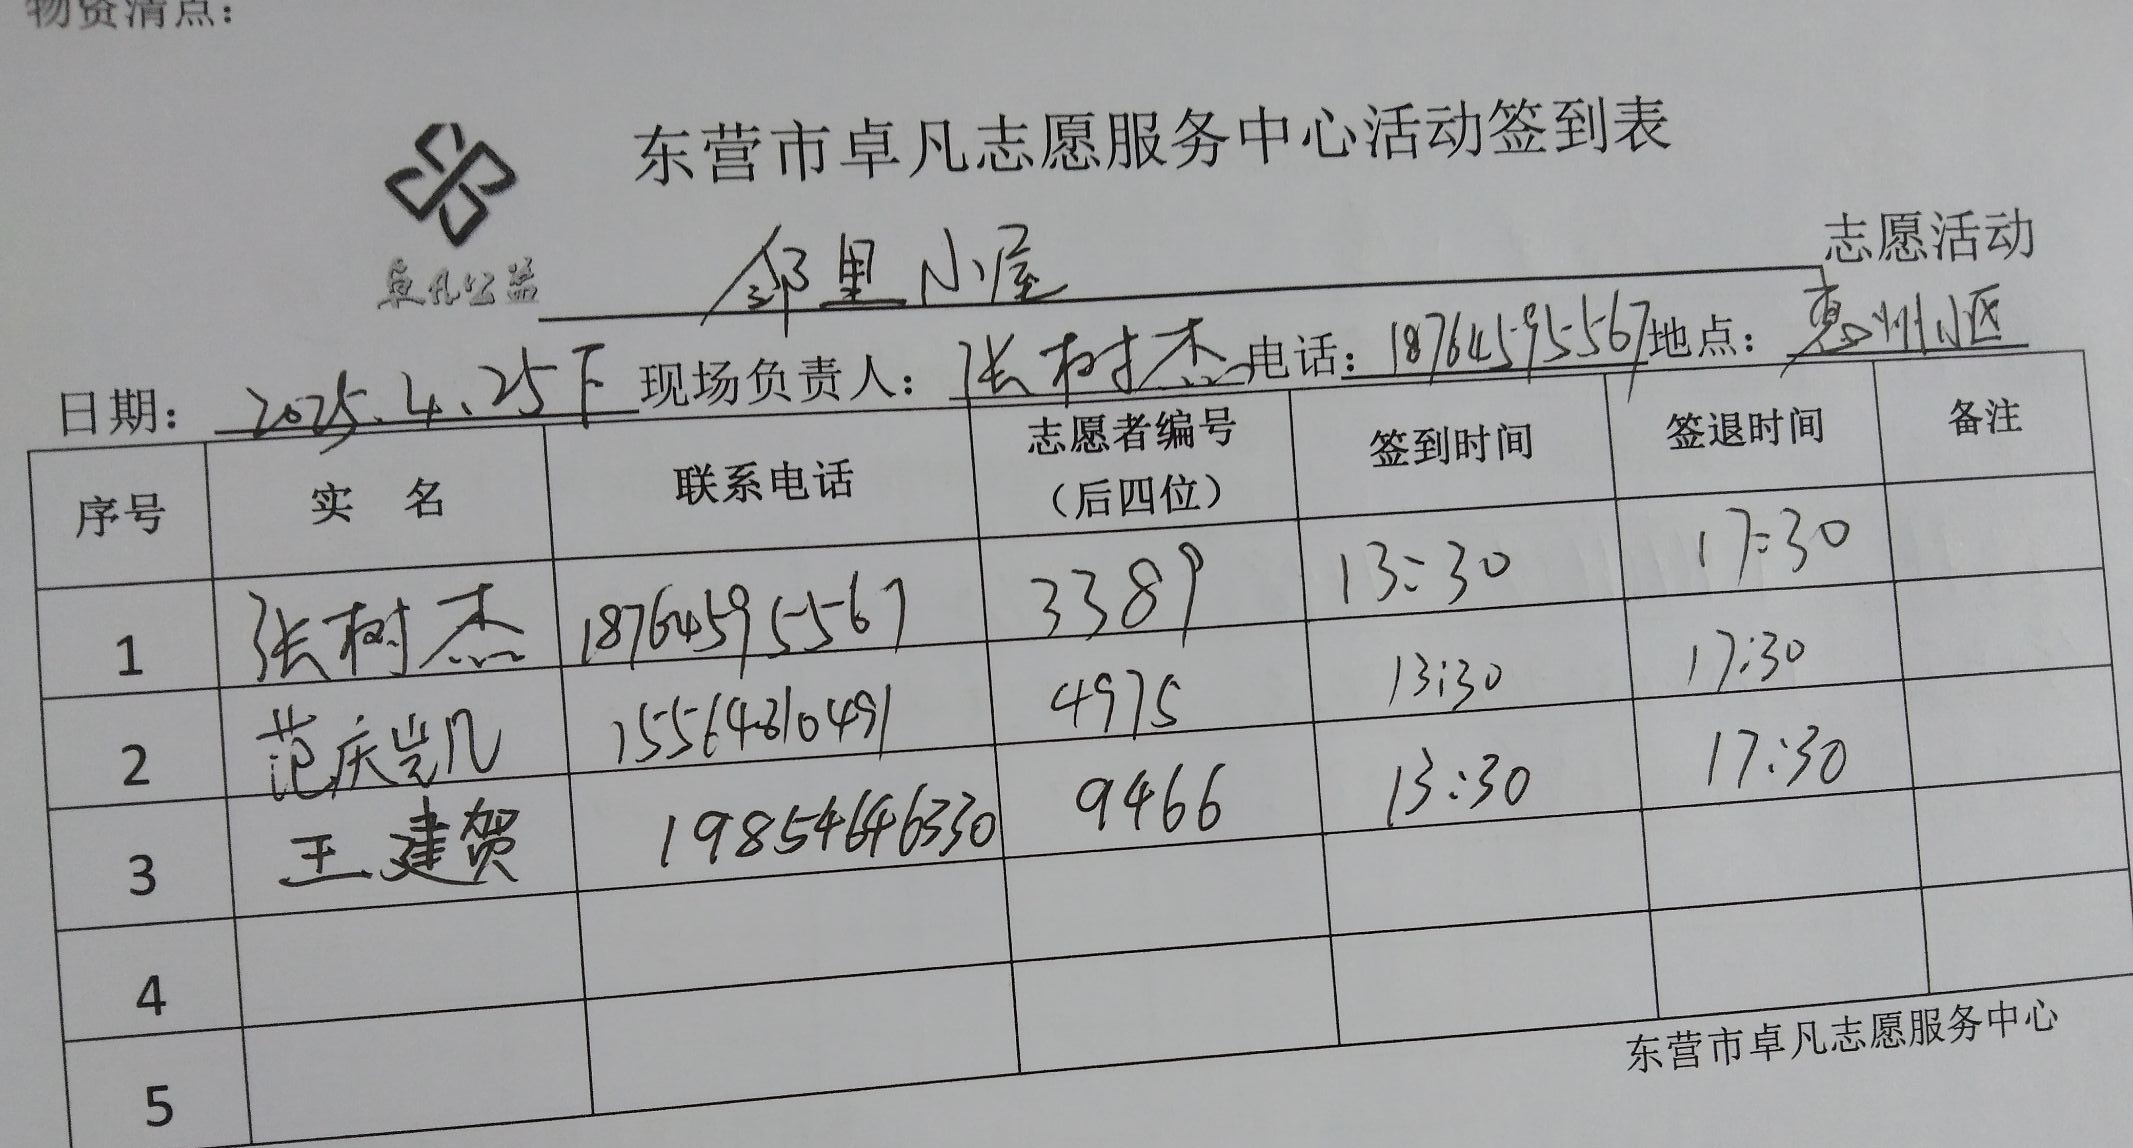 物资清点：
东营市卓凡志愿服务中心活动签到表
卓凡公益
邻里小屋 志愿活动
日期：2025.4.25下 现场负责人：张树杰 电话：18764595567 地点：惠州小区
序号 实 名 联系电话 志愿者编号（后四位） 签到时间 签退时间 备注
1 张树杰 18764595567 3389 13:30 17:30
2 范庆凯 15564810491 4975 13:30 17:30
3 王建贺 19854646330 9466 13:30 17:30
4
5
东营市卓凡志愿服务中心